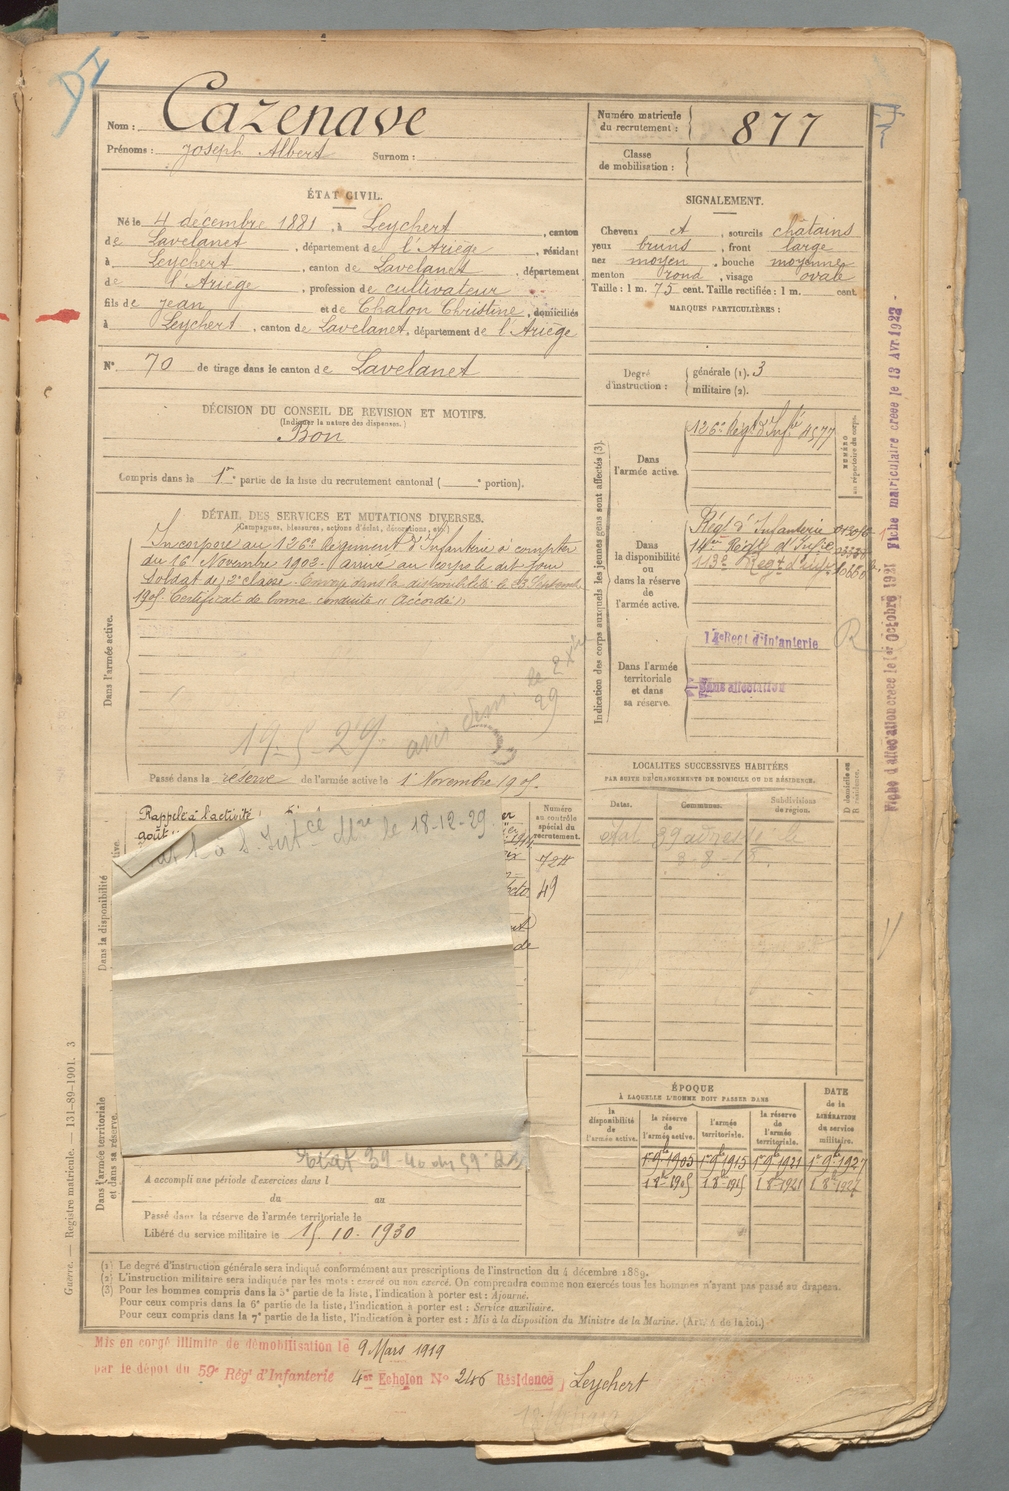 Nom : Cazenave
Prénoms : Joseph Albert Surnom :
Numéro matricule du recrutement : 877
Classe de mobilisation :
ÉTAT CIVIL.
Né le 4 decembre 1881, à Leychert, canton
de Lavelanet, département de l'Ariège, résidant
à Leychert, canton de Lavelanet, département
de l'Ariège, profession de cultivateur
fils de Jean et de Chalon Christine, domiciliés
à Leychert, canton de Lavelanet, département de l'Ariège
N° 70 de tirage dans le canton de Lavelanet
SIGNALEMENT.
Cheveux et, sourcils châtains
yeux bruns, front large
nez moyen, bouche moyenne
menton rond, visage ovale
Taille : 1 m. 75 cent. Taille rectifiée : 1 m. cent.
MARQUES PARTICULIÈRES :
Degré d'instruction : générale (1). 3
militaire (2).
DÉCISION DU CONSEIL DE REVISION ET MOTIFS.
(Indiquer la nature des dispenses.)
Bon
Compris dans la 1re partie de la liste du recrutement cantonal ( e portion).
DÉTAIL DES SERVICES ET MUTATIONS DIVERSES.
(Campagnes, blessures, actions d'éclat, décorations, etc.)
Dans l'armée active.
Incorporé au 126e Régiment d'Infanterie à compter
du 16 Novembre 1902. Arrivé au corps le dit jour
Soldat de 2e classe. Envoyé dans la disponibilité le 23 Septembre
1905. Certificat de bonne conduite "Accordé"
19-5-29
Passé dans la réserve de l'armée active le 1 Novembre 1905.
Indication des corps auxquels les jeunes gens sont affectés (3).
NUMÉRO au répertoire du corps.
Dans l'armée active.
126e Régt d'Infie 4577
Dans la disponibilité ou dans la réserve de l'armée active.
Régt d'Infanterie
Dans l'armée territoriale et dans sa réserve.
Regt d'Infanterie
Sans affectation
R
Fiche d'affectation créée le 1er Octobre 1921 Fiche matriculaire créée le 13 Avr. 1922
LOCALITÉS SUCCESSIVES HABITÉES
PAR SUITE DE CHANGEMENTS DE DOMICILE OU DE RÉSIDENCE.
Dates.
Communes.
Subdivisions de région.
D domicile ou R résidence.
Dans la disponibilité
Rappelé à l'activité
le 18-12-29
Numéro au contrôle spécial du recrutement.
724
49
Dans l'armée territoriale et dans sa réserve.
A accompli une période d'exercices dans l
du au
Passé dans la réserve de l'armée territoriale le
Libéré du service militaire le 15-10-1930
ÉPOQUE
À LAQUELLE L'HOMME DOIT PASSER DANS
la disponibilité de l'armée active.
la réserve de l'armée active.
l'armée territoriale.
la réserve de l'armée territoriale.
DATE de la LIBÉRATION du service militaire.
1er 9bre 1905 1er 9bre 1915 1er 9bre 1921 1er 9bre 1927
1 8bre 1905 1 8bre 1915 1 8bre 1921 1 8bre 1927
(1) Le degré d'instruction générale sera indiqué conformément aux prescriptions de l'instruction du 4 décembre 1889.
(2) L'instruction militaire sera indiquée par les mots : exercé ou non exercé. On comprendra comme non exercés tous les hommes n'ayant pas passé au drapeau.
(3) Pour les hommes compris dans la 5e partie de la liste, l'indication à porter est : Ajourné.
Pour ceux compris dans la 6e partie de la liste, l'indication à porter est : Service auxiliaire.
Pour ceux compris dans la 7e partie de la liste, l'indication à porter est : Mis à la disposition du Ministre de la Marine. (Art. 4 de la loi.)
Guerre. — Registre matricule. — 131-89-1901. 3
Mis en congé illimité de démobilisation le 9 Mars 1919
par le dépot du 59e Régt d'Infanterie 4e Echelon N° 246 Résidence Leychert